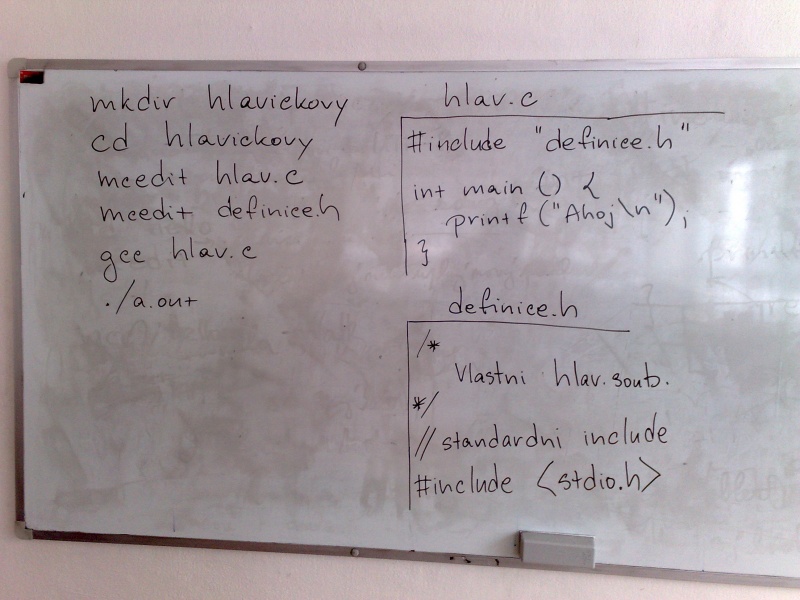 mkdir hlavickovy
cd hlavickovy
mcedit hlav.c
mcedit definice.h
gcc hlav.c
./a.out
hlav.c
#include "definice.h"
int main () {
printf ("Ahoj\n");
}
definice.h
/*
Vlastni hlav.soub.
*/
// standardni include
#include <stdio.h>